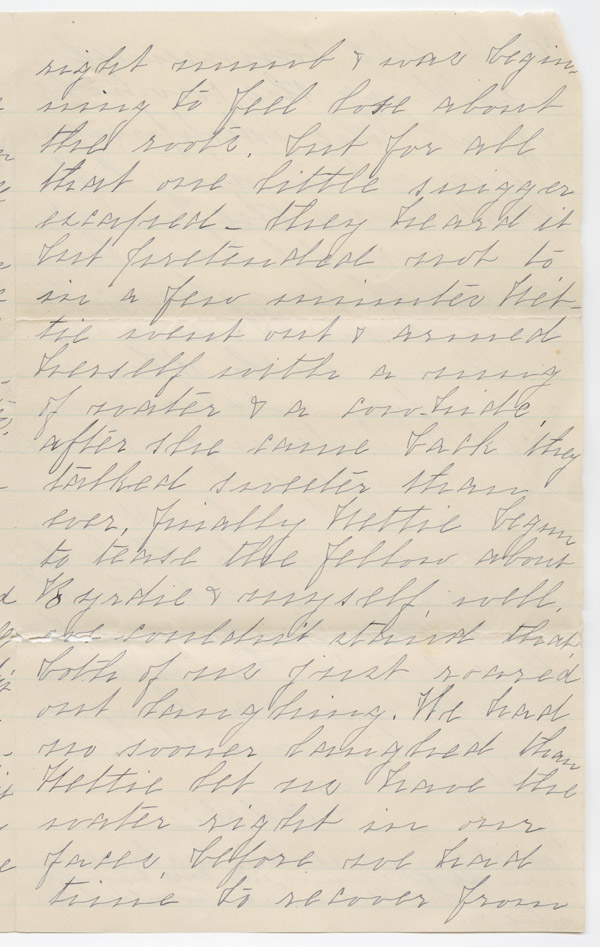 right numb & was begin-
ning to feel lose about
the roots. but for all
that one little snigger
escaped - they heard it
but pretended not to
in a few minutes Het-
tie went out & armed
herself with a mug
of water & a cow-hide,
after she came back they
talked sweeter than
ever, finally Hettie begun
to tease the fellow about
Byrdie & myself, well,
we couldn't stand that
both of us just roared
out laughing. We had
no sooner laughed than
Hettie let us have the
water right in our
faces, before we had
time to recover from